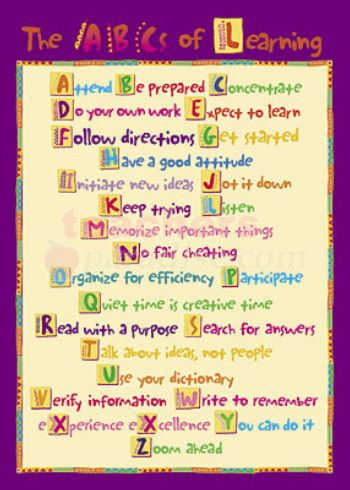 The ABCs of Learning
Attend Be prepared Concentrate
Do your own work Expect to learn
Follow directions Get started
Have a good attitude
Initiate new ideas Jot it down
Keep trying Listen
Memorize important things
No fair cheating
Organize for efficiency Participate
Quiet time is creative time
Read with a purpose Search for answers
Talk about ideas, not people
Use your dictionary
Verify information Write to remember
eXperience eXcellence You can do it
Zoom ahead